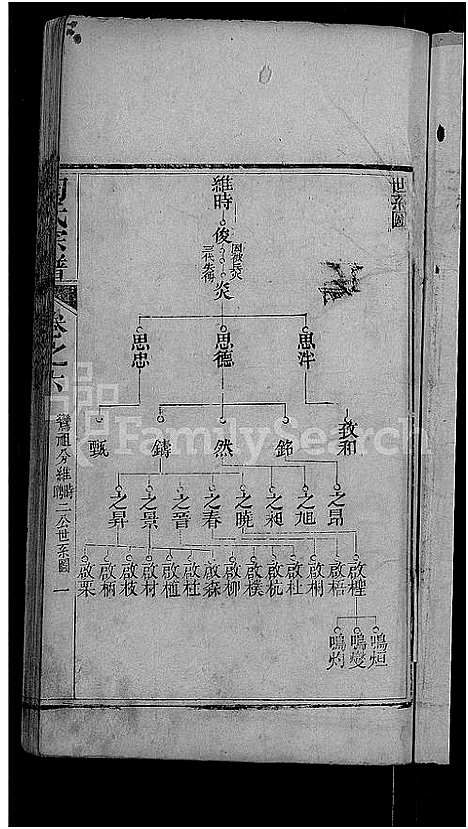 世系圖
維時
俊
因被兵火
三代失傳
炎
思泮
思德
思忠
致和
鈽
然
鑄
甄
之昂
之旭
之昶
之曉
之春
之晉
之景
之昇
啟桯
啟梧
啟桐
啟杜
啟杭
啟樸
啟柳
啟森
啟柱
啟植
啟材
啟枝
啟柄
啟栗
鳴烜
鳴燮
鳴灼
氏宗譜
卷之六
二公世系圖 一
FamilySearch